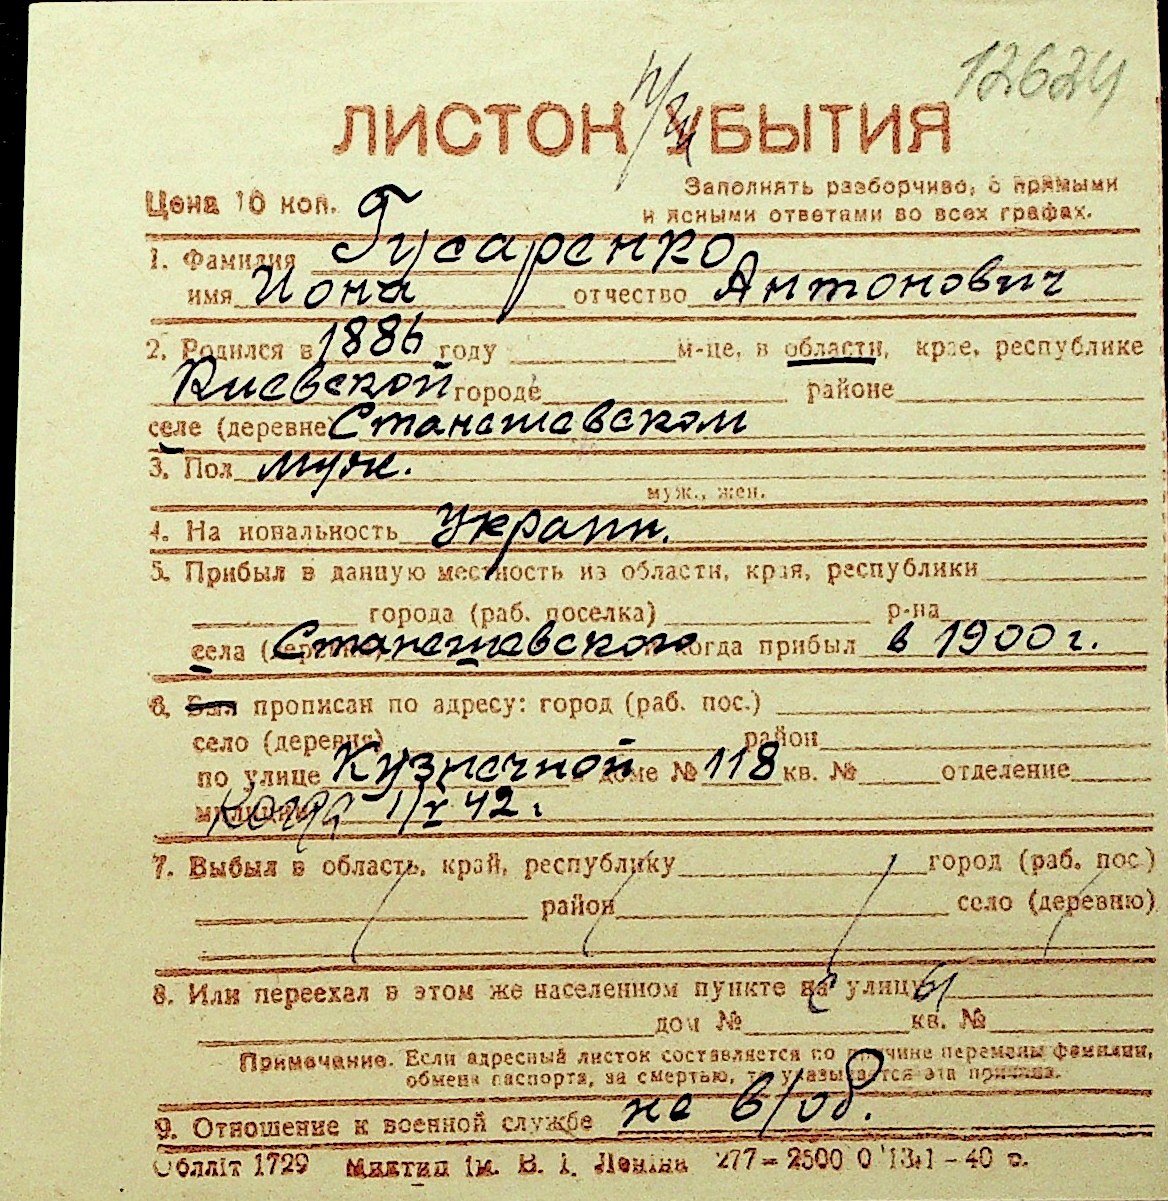 12624
ЛИСТОК УБЫТИЯ
Цена 10 коп.
Заполнять разборчиво, с прямыми
и ясными ответами во всех графах.
1. Фамилия Гусаренко
имя Иона отчество Антонович
2. Родился в 1886 году м-це, в области, крае, республике
Киевской городе районе
селе (деревне) Станешевском
3. Пол муж.
муж., жен.
4. Национальность Украин.
5. Прибыл в данную местность из области, края, республики
города (раб. поселка) р-на
села (деревни) Станешевского и когда прибыл в 1900 г.
6. Был прописан по адресу: город (раб. пос.)
село (деревня) район
по улице Кузнечной доме № 118 кв. № отделение
милиции Когда 1/X 42 г.
7. Выбыл в область, край, республику город (раб. пос.)
район село (деревню)
8. Или переехал в этом же населенном пункте на улицу
дом № кв. №
Примечание. Если адресный листок составляется по причине перемены фамилии,
обмена паспорта, за смертью, то указывается эта причина.
9. Отношение к военной службе не в/об.
Обллiт 1729 Миктип iм. В. I. Ленiна 277 – 2500 0 13.1 – 40 р.